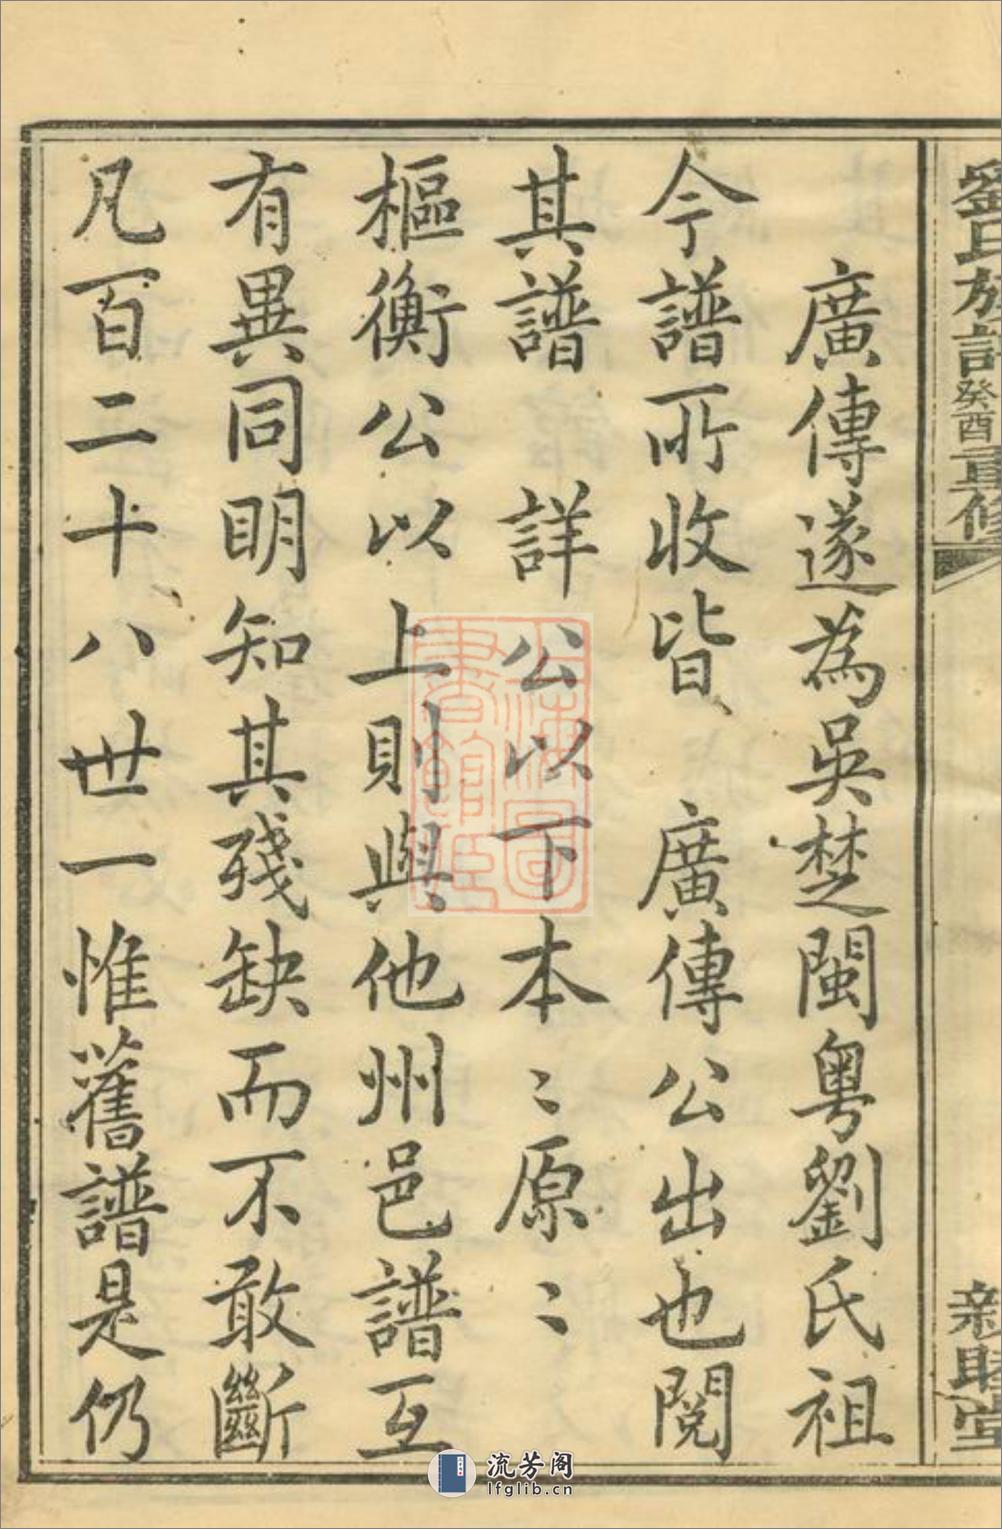 劉氏族譜癸酉重修
親睦堂
廣傳遂為吳楚閩粵劉氏祖
今譜所收皆、廣傳公出也閱
其譜 詳公以下本〻原〻
樞衡公以上則與他州邑譜互
有異同明知其殘缺而不敢斷
凡百二十八世一惟舊譜是仍
上海圖書館藏
流芳阁
lfglib.cn